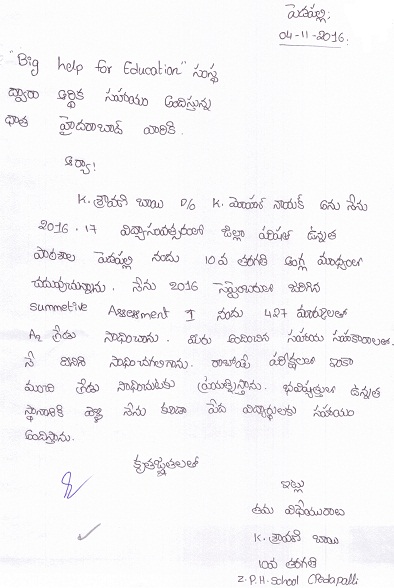 పెదపల్లి.
04-11-2016.
"Big help for Education" సంస్థ
ద్వారా ఆర్థిక సహాయం అందిస్తున్న
దాత హైదరాబాద్ వారికి.
ఆర్యా!
K. శ్రావణి బాయి D/o K. నాయక్ అను నేను
2016-17 విద్యాసంవత్సరంలో జిల్లా పరిషత్ ఉన్నత
పాఠశాల పెదపల్లి నందు 10వ తరగతి ఆంగ్ల మాధ్యంలో
చదువుచున్నాను. నేను 2016 సెప్టెంబరులో జరిగిన
Summetive Assessment I నందు 427 మార్కులతో
A2 గ్రేడు సాధించాను. మీరు అందించిన సహాయ సహకారాలతో
నే దీనిని సాధించగలిగాను. రాబోయే పరీక్షలలో ఇంకా
మంచి గ్రేడు సాధించుటకు ప్రయత్నిస్తాను. భవిష్యత్తులో ఉన్నత
స్థానానికి వెళ్ళి నేను కూడా పేద విద్యార్థులకు సహాయం
అందిస్తాను.
కృతజ్ఞతలతో
ఇట్లు
తమ విధేయురాలు
K. శ్రావణి బాయి
10వ తరగతి
Z.P.H.School (Pedapalli